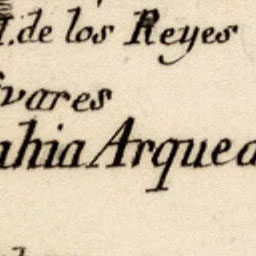 I. de los Reyes
vares
ahia Arquea